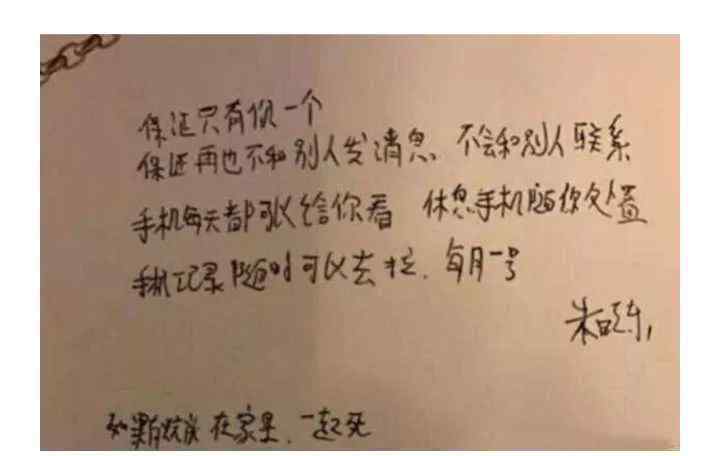 保证只有你一个
保证再也不和别人发消息 不会和别人联系
手机每天都可以给你看 休息手机随你处置
手机记录随时可以去拉. 每月一号
朱
如果 在家里、一起死